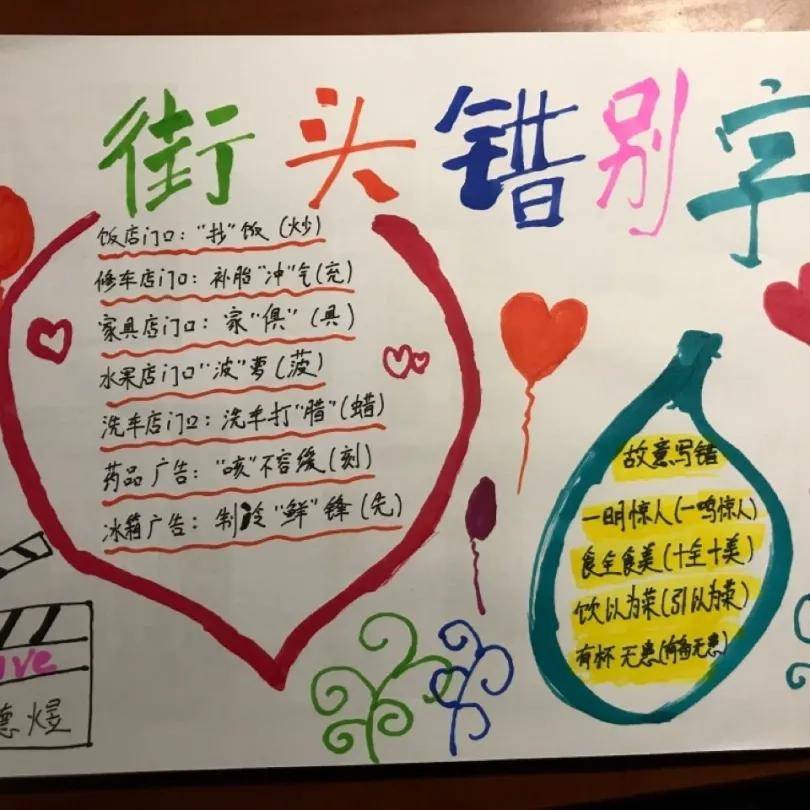 街头错别字
饭店门口："抄"饭(炒)
修车店门口：补胎"冲"气(充)
家具店门口：家"俱"(具)
水果店门口"波"萝(菠)
洗车店门口：洗车打"腊"(蜡)
药品广告："咳"不容缓(刻)
冰箱广告：制冷"鲜"锋(先)
故意写错
一明惊人(一鸣惊人)
食全食美(十全十美)
饮以为菜(引以为菜)
有杯无患(有备无患)
德煜